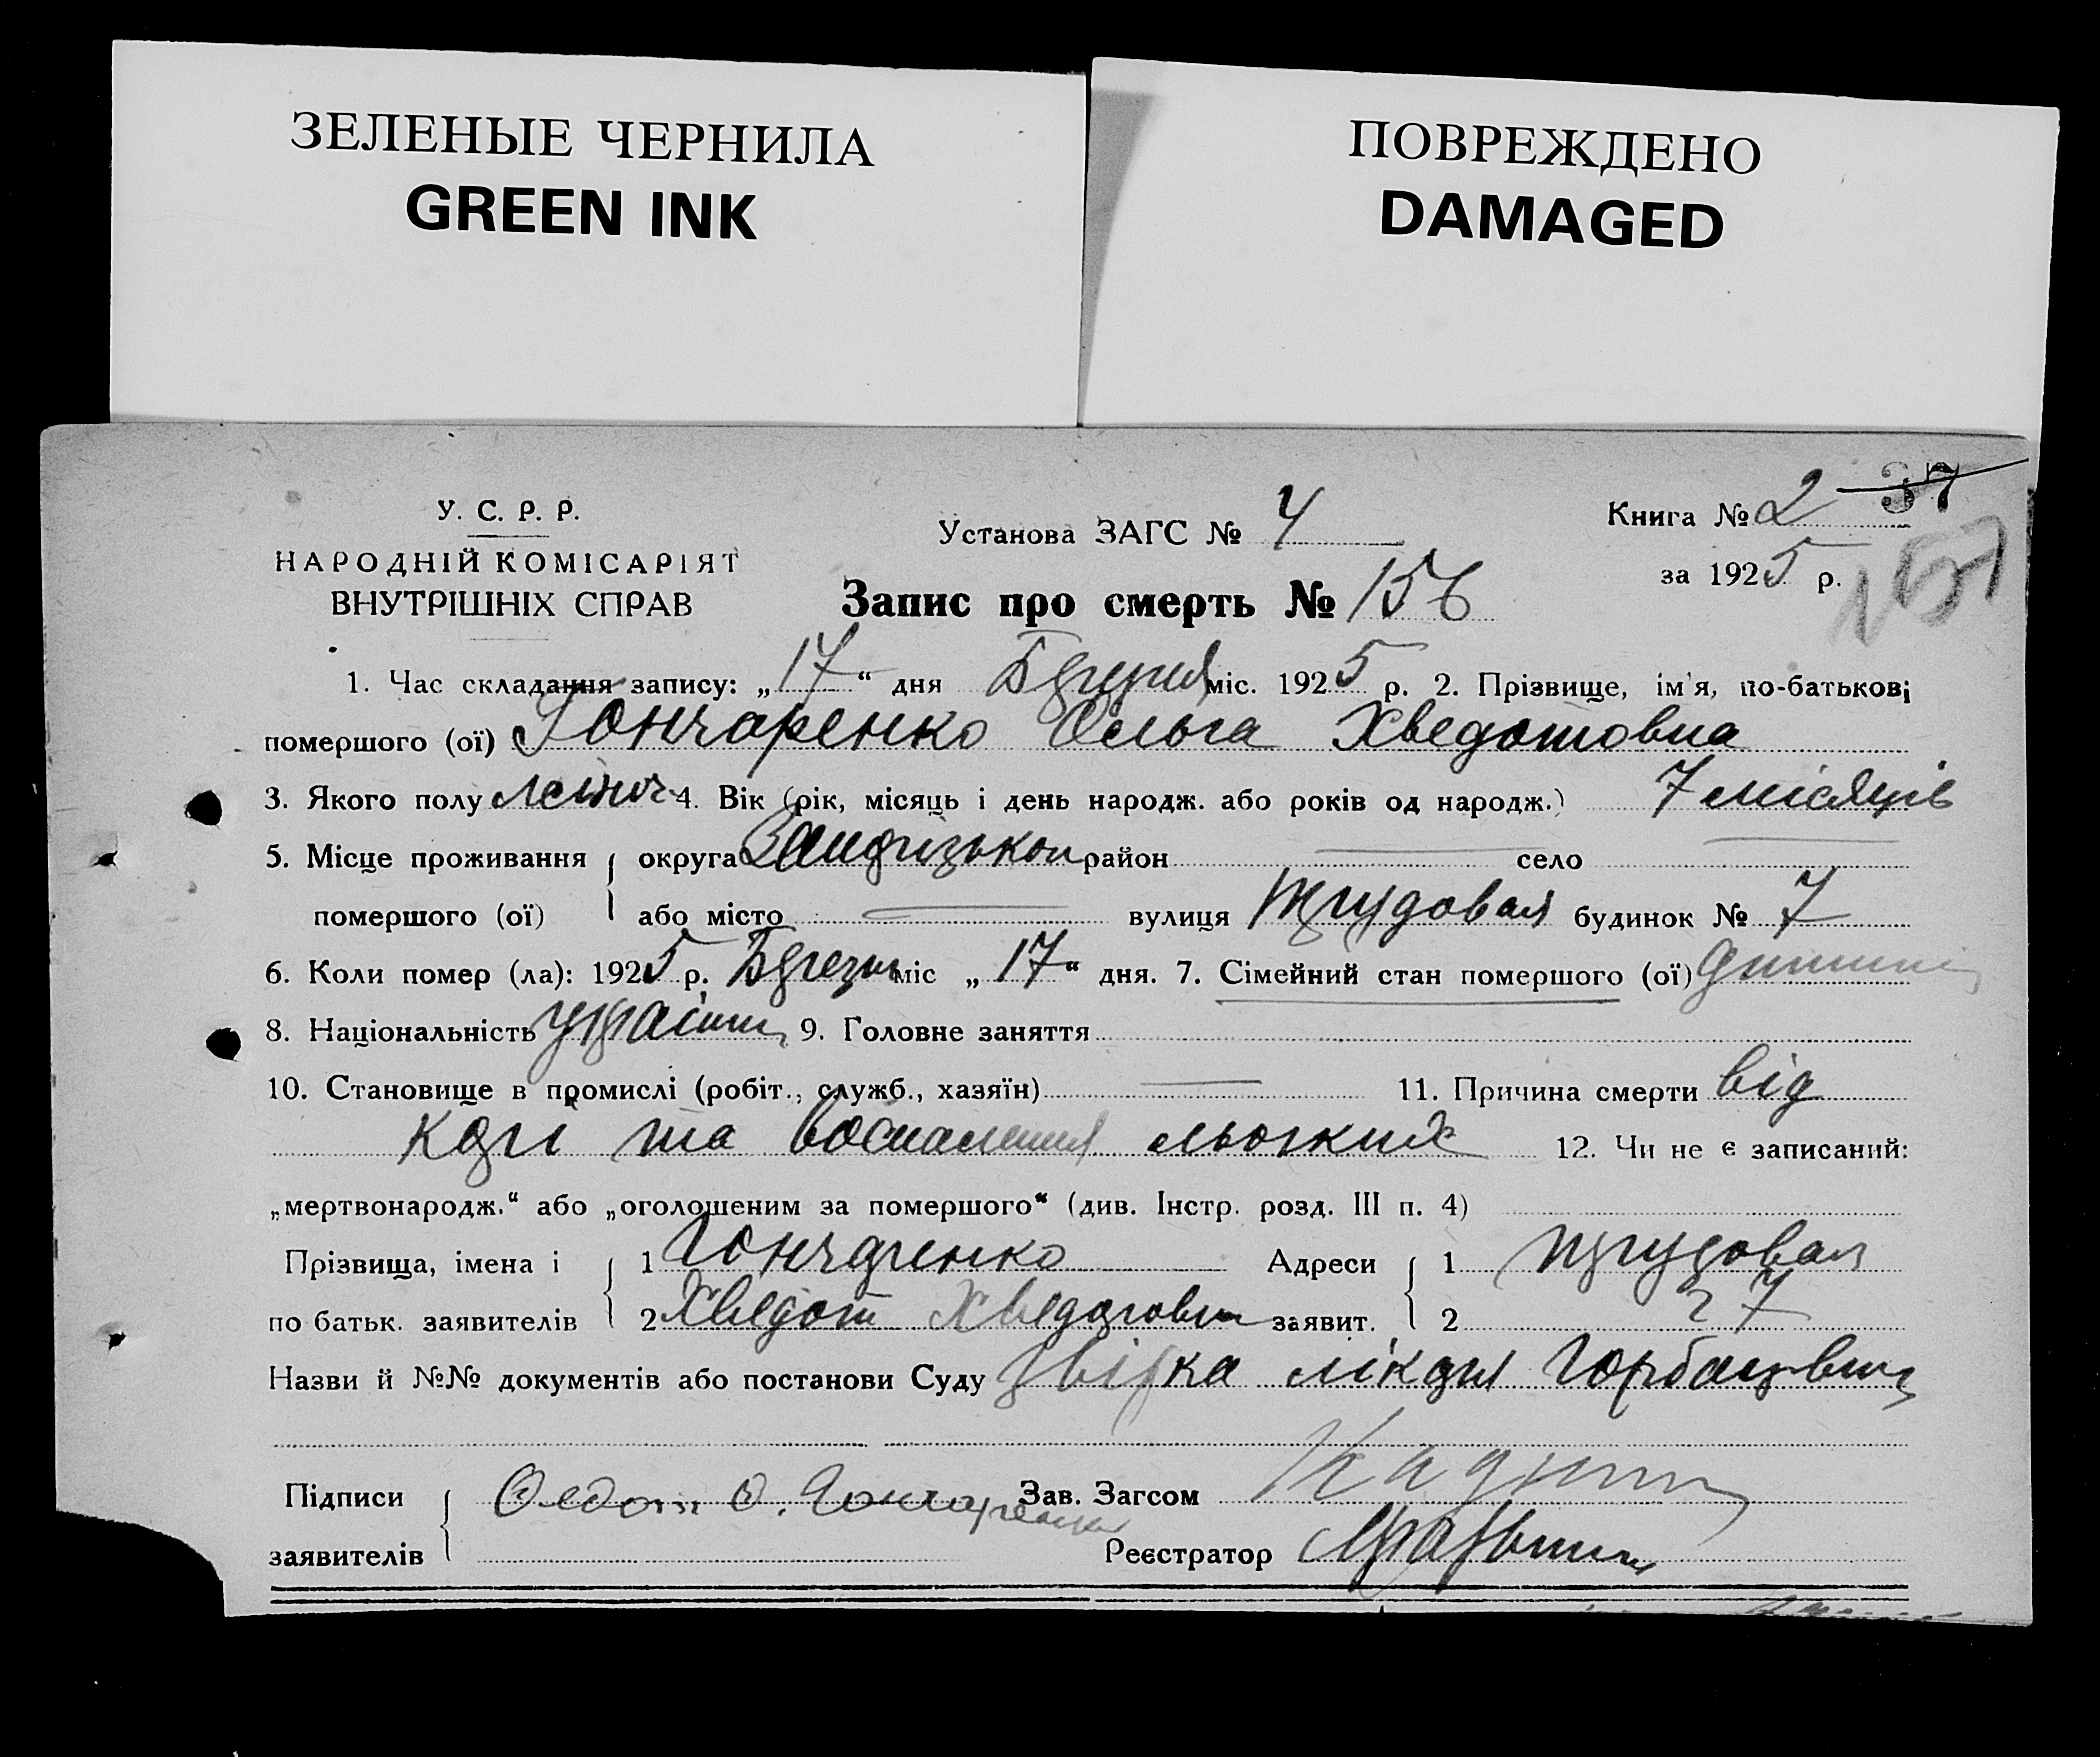 ЗЕЛЕНЫЕ ЧЕРНИЛА
GREEN INK
ПОВРЕЖДЕНО
DAMAGED
У. С. Р. Р.
НАРОДНІЙ КОМІСАРІЯТ
ВНУТРІШНІХ СПРАВ
Установа ЗАГС № 4
Книга № 2 37
за 1925 р. 157
Запис про смерть № 156
1. Час складання запису: „17“ дня міс. 1925 р. 2. Прізвище, ім'я, по-батькові
помершого (ої) Гончаренко Ольга Хведотовна
3. Якого полу 4. Вік (рік, місяць і день народж. або років од народж.) 7 місяців
5. Місце проживання округа район — село —
помершого (ої) або місто — вулиця Трудовая будинок № 7
6. Коли помер (ла): 1925 р. Березня міс „17“ дня. 7. Сімейний стан помершого (ої) дитина
8. Національність 9. Головне заняття
10. Становище в промислі (робіт., служб., хазяїн) — 11. Причина смерти від
кори та воспаления льогких 12. Чи не є записаний:
„мертвонародж.“ або „оголошеним за помершого“ (див. Інстр. розд. III п. 4)
Прізвища, імена і 1 Гончаренко Адреси 1 Трудовая
по батьк. заявителів 2 Хведот заявит. 2 7
Назви й №№ документів або постанови Суду лікаря
Підписи Федот Ф. Гончаренко Зав. Загсом
заявителів Реєстратор